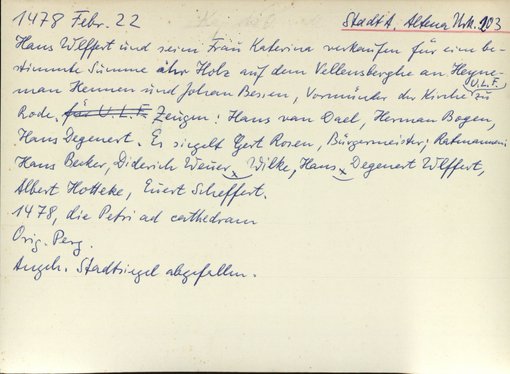 1478 Febr. 22 StadtA. Altena Urk. 203
Hans Wlffert und seine Frau Katerina verkaufen für eine be-
stimmte Summe ihr Holz auf dem Vellensberghe an Heyne-
man Hennen und Johan Bessen, Vormünder der Kirche U.L.F. zu
Rode. für U.L.F. Zeugen: Hans van Dael, Herman Bogen,
Hans Degenert. Es siegelt Gert Rosen, Bürgermeister; Ratmannen:
Hans Becker, Diderich Wever, Wilke, Hans, Degenert Wlffert,
Albert Hotteke, Evert Scheffert.
1478, die Petri ad cathedram
Orig. Perg.
Angeh. Stadtsiegel abgefallen.